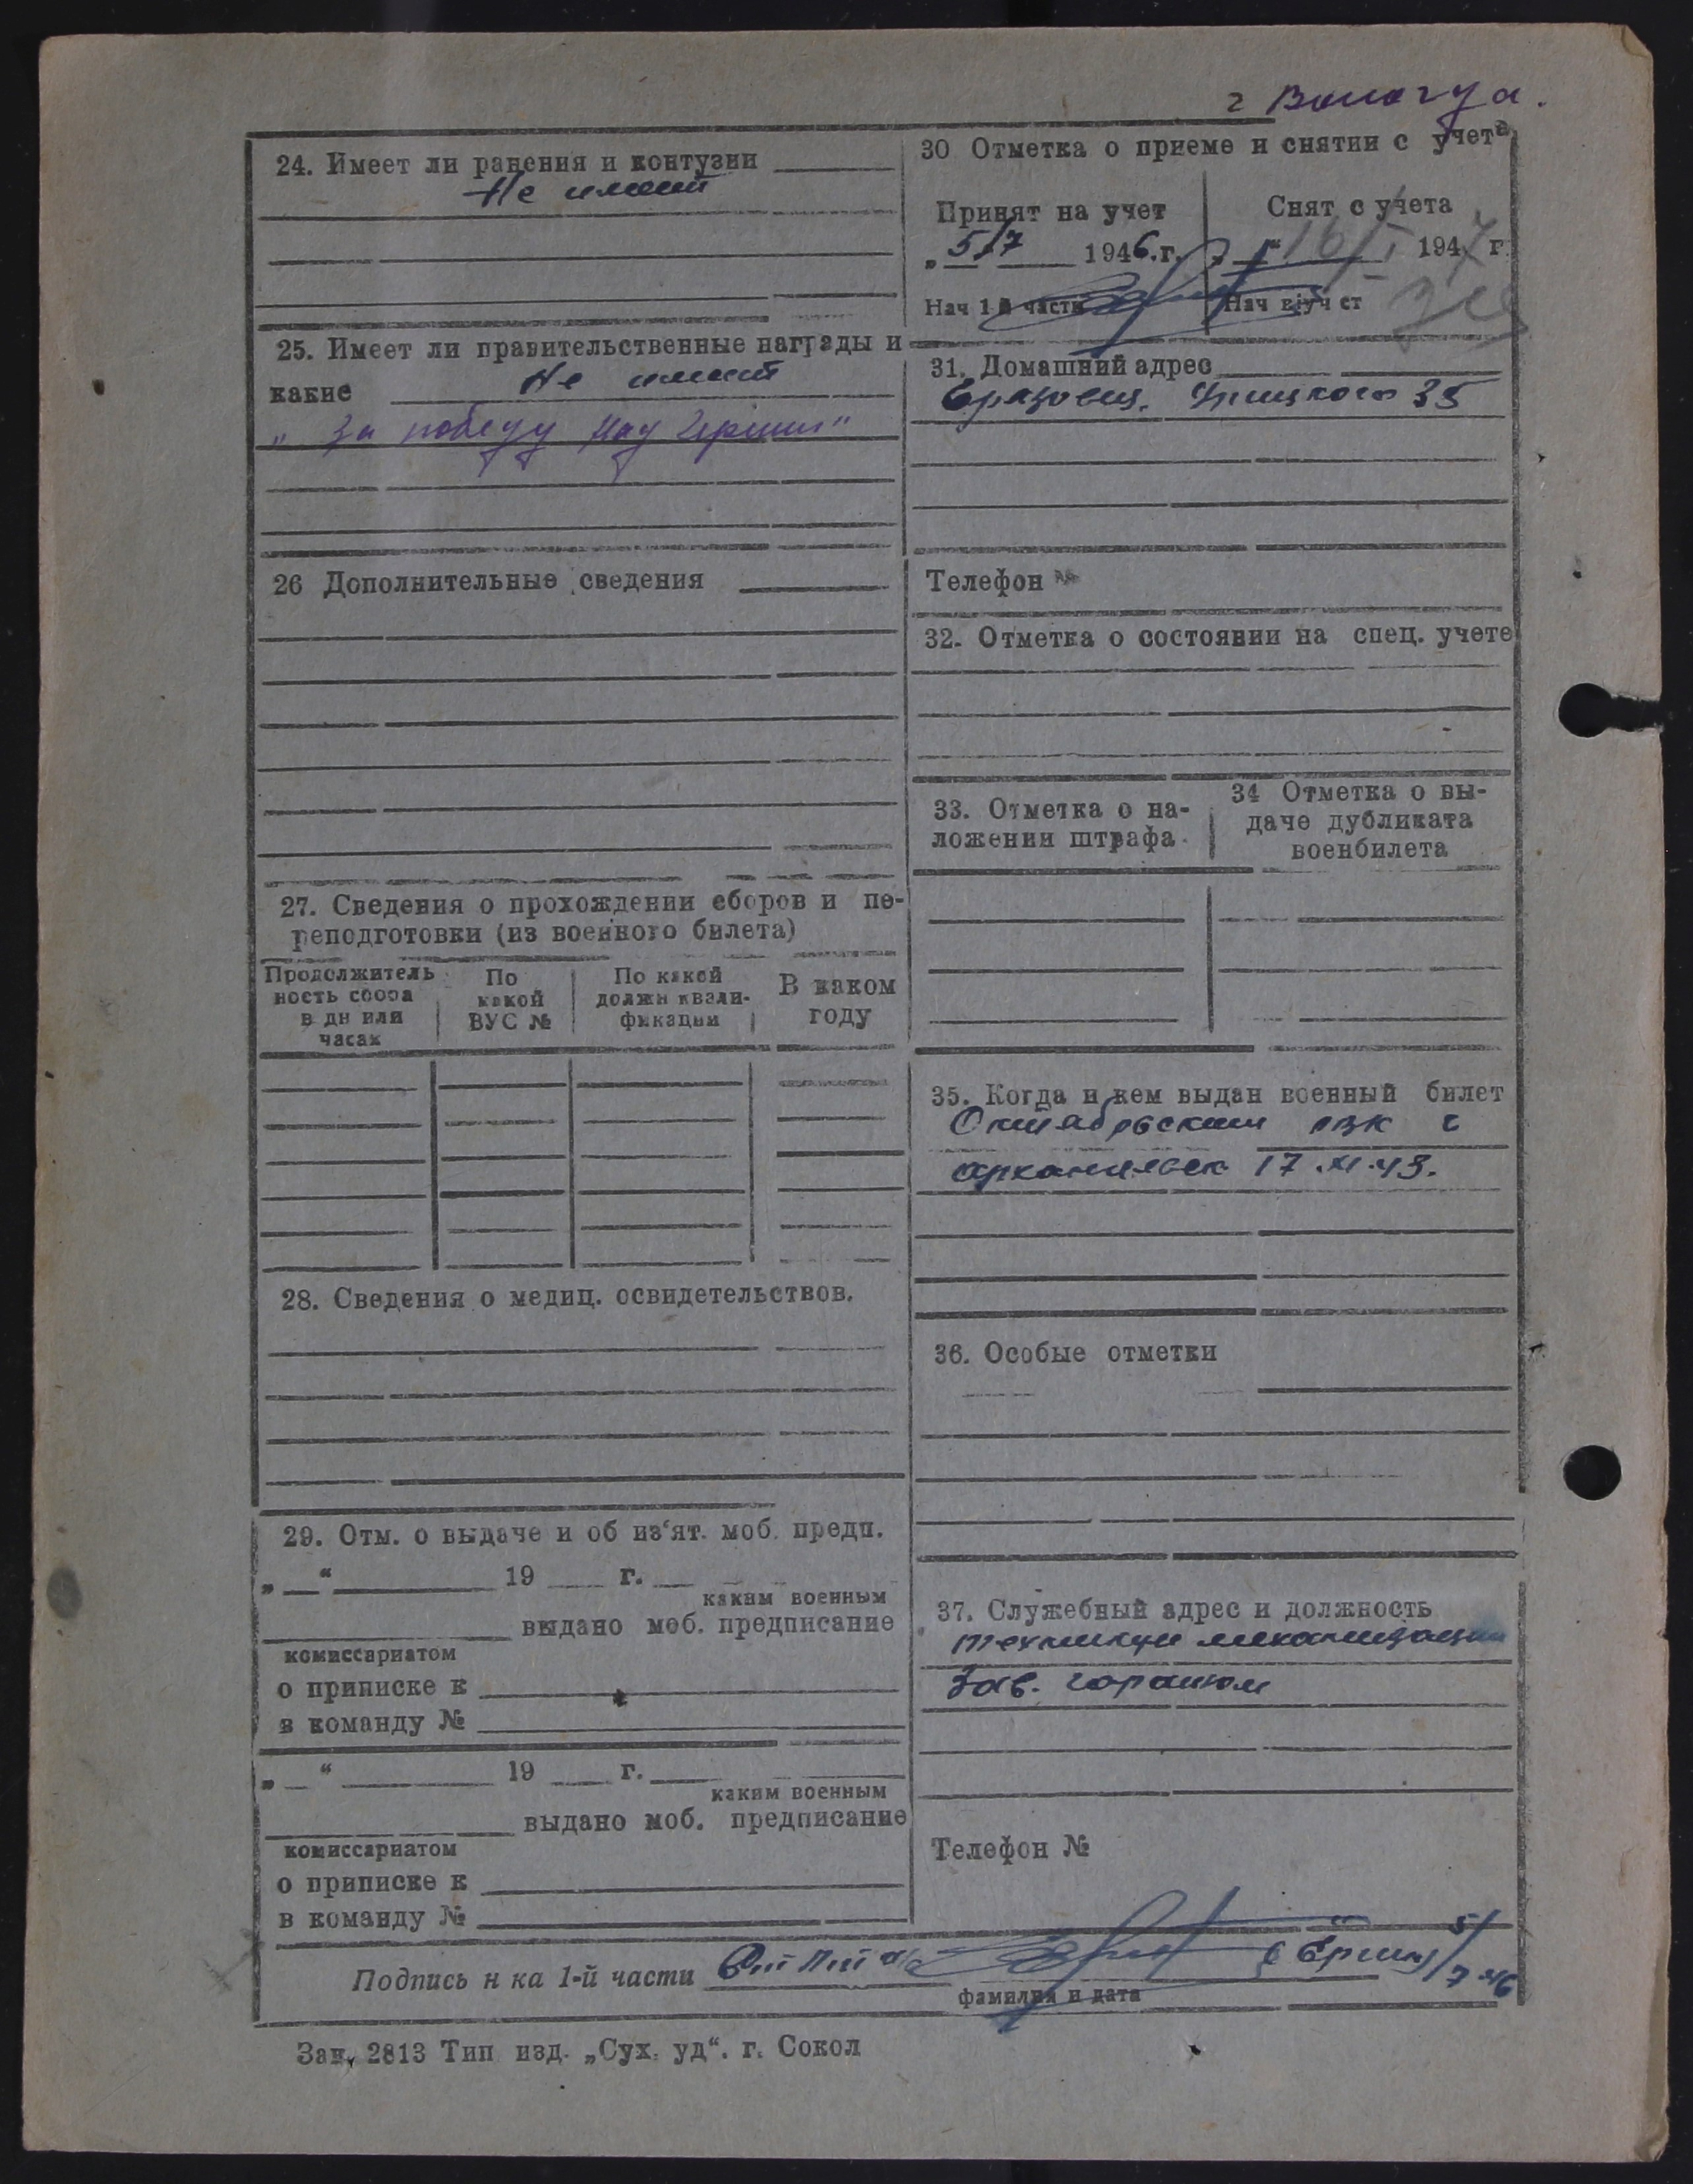 г Вологда.
24. Имеет ли ранения и контузии
Не имеет
25. Имеет ли правительственные награды и
какие Не имеет
„За победу над Герман"
26 Дополнительные сведения
27. Сведения о прохождении сборов и пе-
реподготовки (из военного билета)
Продолжитель
ность сбора
в дн или
часах
По
какой
ВУС №
По какой
должн квали-
фикации
В каком
году
28. Сведения о медиц. освидетельствов.
29. Отм. о выдаче и об из‘ят. моб. предп.
„ “ 19 г.
каким военным
выдано моб. предписание
комиссариатом
о приписке к
в команду №
„ “ 19 г.
каким военным
выдано моб. предписание
комиссариатом
о приписке к
в команду №
30 Отметка о приеме и снятии с учета
Принят на учет
„5/7 1946.г.
Нач 1 й части
Снят с учета
„ “ 16/I 1947 г
Нач в/уч ст
31. Домашний адрес
Грязовец, Урицкого 35
Телефон №
32. Отметка о состоянии на спец. учете
33. Отметка о на-
ложении штрафа
34 Отметка о вы-
даче дубликата
военбилета
35. Когда и кем выдан военный билет
Октябрьским РВК г
Архангельск 17.XI.43.
36. Особые отметки
37. Служебный адрес и должность
техникум механизации
Зав. гаражом
Телефон №
Подпись н ка 1-й части
фамилия и дата
5/7 46
Зак. 2813 Тип изд. „Сух. уд“. г. Сокол